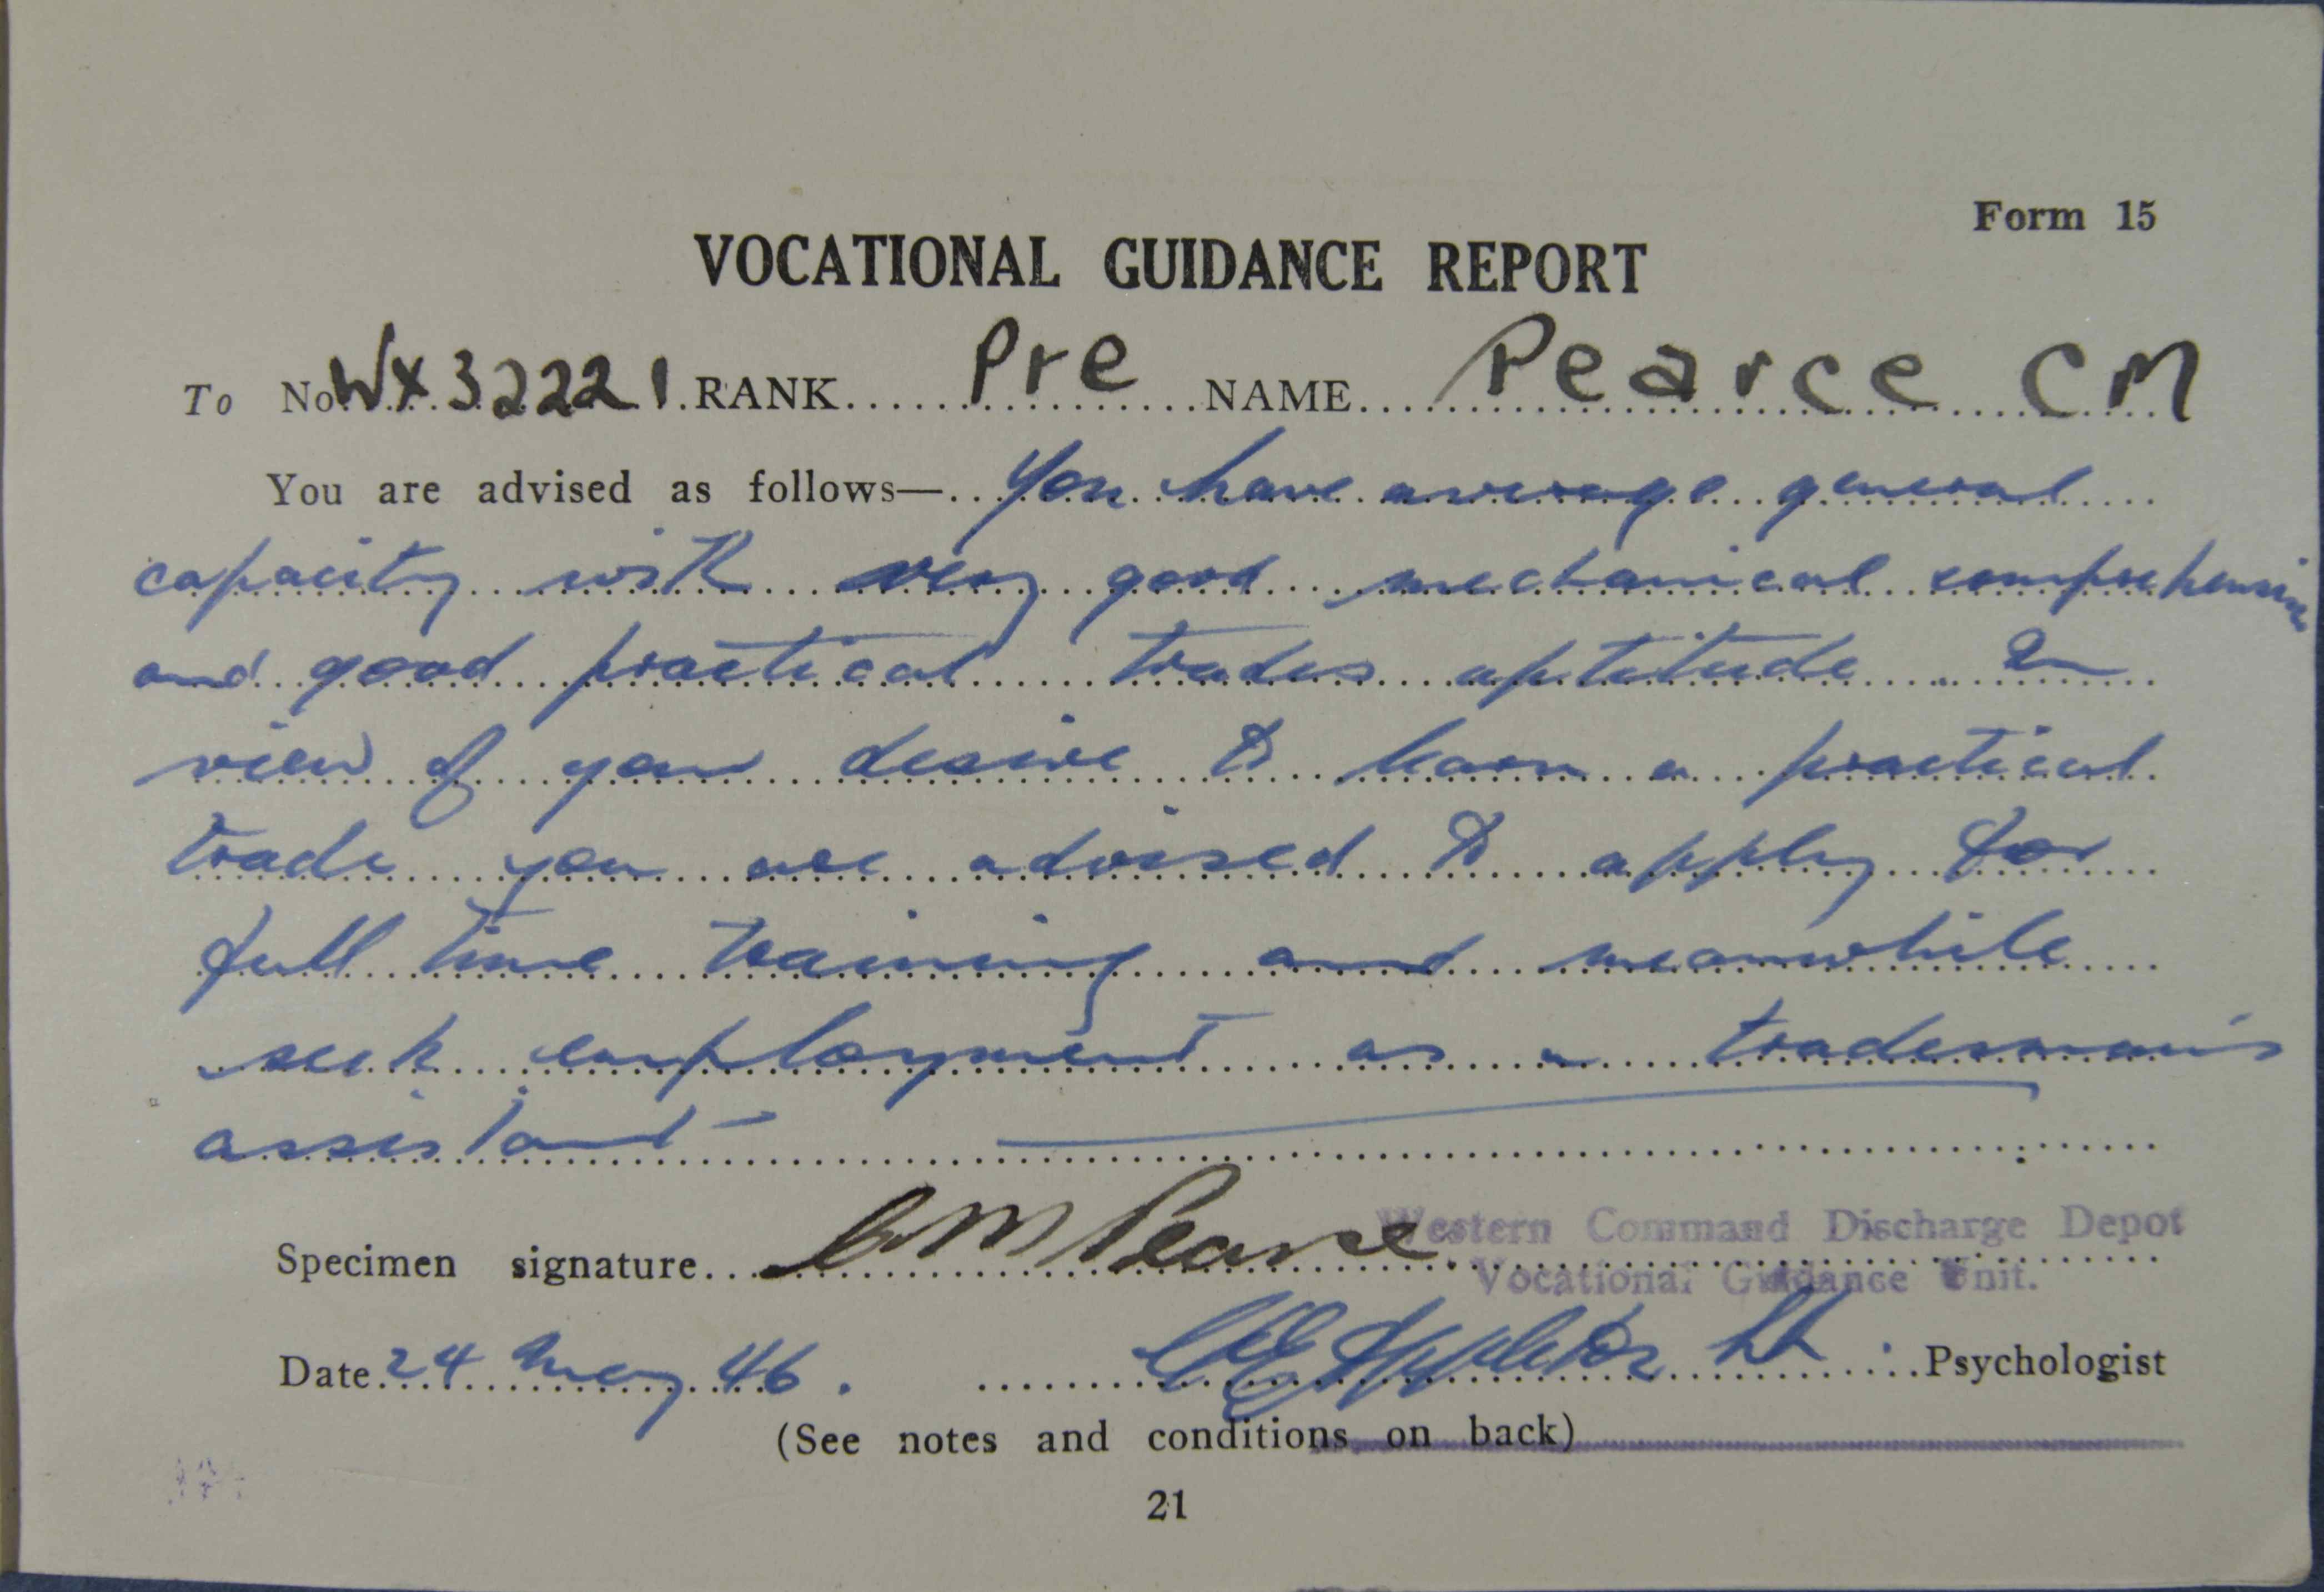 Form 15
VOCATIONAL GUIDANCE REPORT
To No. WX32221 RANK Pre NAME Pearce CM
You are advised as follows— You have average general
capacity with very good mechanical comprehension
and good practical trades aptitude. In
view of your desire to learn a practical
trade you are advised to apply for
full time training and meanwhile
seek employment as a tradesman's
assistant
Specimen signature C M Pearce
Western Command Discharge Depot
Vocational Guidance Unit.
Date 24 May 46. Appleton Lt Psychologist
(See notes and conditions on back)
21